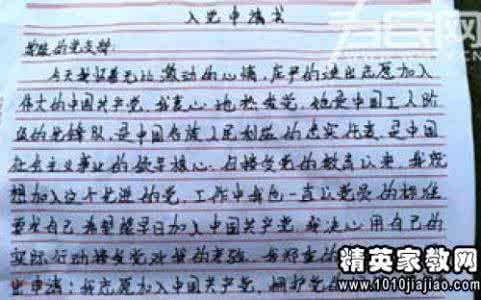 入党申请书
为民网
尊敬的党支部:
今天我怀着无比激动的心情,庄严的递出志愿加入
伟大的中国共产党,我衷心地热爱党,她是中国工人阶
级的先锋队,是中国各族人民利益的忠实代表,是中国
社会主义事业的领导核心.自接受党的教育以来,我就
想加入这个先进的党.工作中我也一直以党员的标准
要求自己希望能早日加入中国共产党.我决心用自己的
实际行动接受党对我的考验,我郑重的
出申请:我志愿加入中国共产党,拥护党的
精英家教网
www.1010jiajiao.com